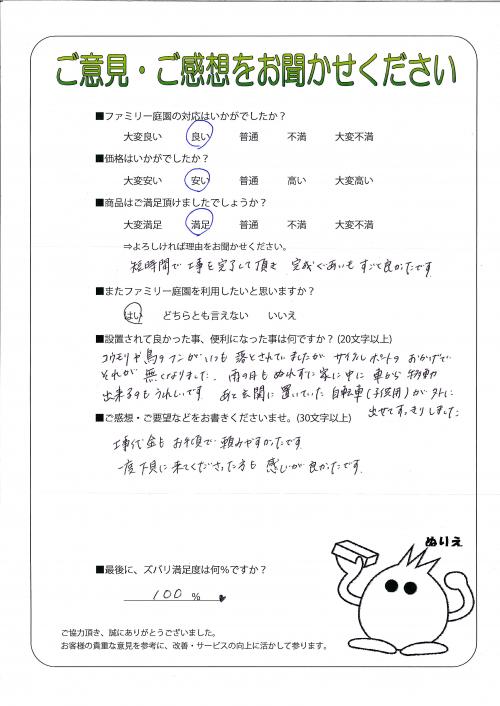 ご意見・ご感想をお聞かせください
■ファミリー庭園の対応はいかがでしたか？
大変良い 良い 普通 不満 大変不満
■価格はいかがでしたか？
大変安い 安い 普通 高い 大変高い
■商品はご満足頂けましたでしょうか？
大変満足 満足 普通 不満 大変不満
⇒よろしければ理由をお聞かせください。
短時間で工事を完了して頂き 完成ぐあいもすごく良かったです
■またファミリー庭園を利用したいと思いますか？
はい どちらとも言えない いいえ
■設置されて良かった事、便利になった事は何ですか？(20文字以上)
コウモリや鳥のフンがいつも落とされていましたが サイクルポートのおかげで
それが無くなりました。雨の日もぬれずに家に中に車から移動
出来るのもうれしいです あと玄関に置いていた自転車(子供用)が外に
出せてすっきりしました
■ご感想・ご要望などをお書きくださいませ。(30文字以上)
工事代金もお手頃で頼みやすかったです
一度下見に来てくださった方も感じが良かったです。
ぬりえ
■最後に、ズバリ満足度は何％ですか？
100 %
ご協力頂き、誠にありがとうございました。
お客様の貴重な意見を参考に、改善・サービスの向上に活かして参ります。